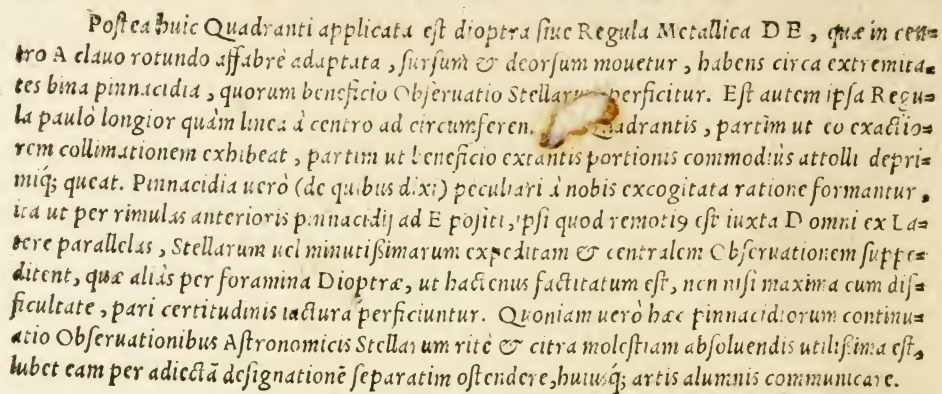 Poſtea huic Quadranti applicata eſt dioptra ſiue Regula Metallica D E , quæ in cen=
tro A clauo rotundo affabrè adaptata , ſurſum & deorſum mouetur , habens circa extremita=
tes bina pinnacidia , quorum beneficio Obſeruatio Stellarum perficitur. Eſt autem ipſa Regu=
la paulò longior quàm linea à centro ad circumferen. Quadrantis , partim ut eo exactio=
rem collimationem exhibeat , partim ut beneficio extantis portionis commodiùs attolli depri=
miq; queat. Pinnacidia uerò (de quibus dixi) peculiari à nobis excogitata ratione formantur ,
ita ut per rimulas anterioris pinnacidij ad E poſiti, ipſi quod remotiꝰ eſt iuxta D omni ex La=
tere parallelas , Stellarum uel minutißimarum expeditam & centralem Obſeruationem ſuppe=
ditent, quæ aliàs per foramina Dioptræ, ut hactenus factitatum eſt, non niſi maxima cum dif=
ficultate , pari certitudinis iactura perficiuntur. Quoniam uerò hæc pinnacidiorum continu=
atio Obſeruationibus Aſtronomicis Stellarum ritè & citra moleſtiam abſoluendis utilißima eſt,
lubet eam per adiectã deſignationẽ ſeparatim oſtendere, huiusq́; artis alumnis communicare.